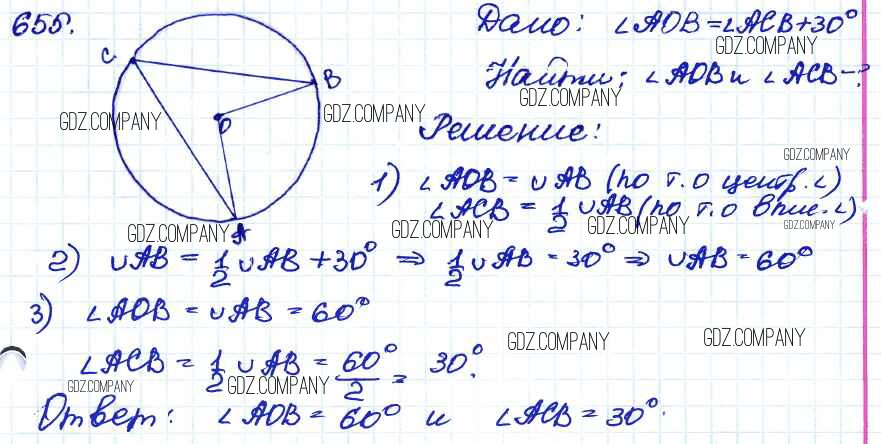 655.
Дано: ∠AOB = ∠ACB + 30°
GDZ.COMPANY
Найти: ∠AOB и ∠ACB - ?
GDZ.COMPANY
C
B
O
A
GDZ.COMPANY
GDZ.COMPANY
Решение:
GDZ.COMPANY
1) ∠AOB = ∪AB (по т. о центр. ∠)
∠ACB = 1/2 ∪AB (по т. о впис. ∠)
GDZ.COMPANY
GDZ.COMPANY
GDZ.COMPANY
GDZ.COMPANY
2) ∪AB = 1/2 ∪AB + 30° ⇒ 1/2 ∪AB = 30° ⇒ ∪AB = 60°
3) ∠AOB = ∪AB = 60°
GDZ.COMPANY
GDZ.COMPANY
∠ACB = 1/2 ∪AB = 60°/2 = 30°.
GDZ.COMPANY
GDZ.COMPANY
Ответ: ∠AOB = 60° и ∠ACB = 30°.